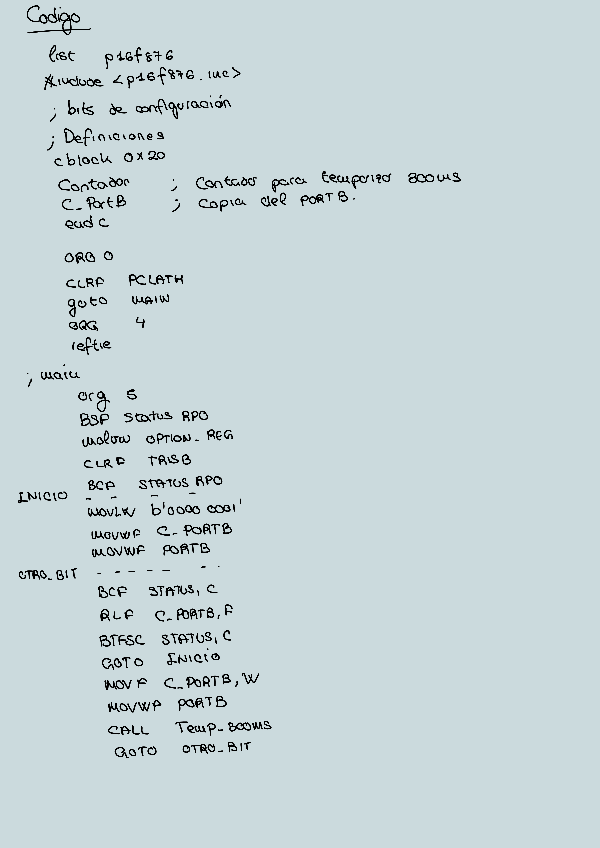 Codigo
list p16f876
#include <p16f876.inc>
; bits de configuración
; Definiciones
cblock 0x20
Contador ; Contador para temporizo 800ms
C_PortB ; Copia del PORTB.
endc
ORG 0
CLRF PCLATH
goto MAIN
ORG 4
retfie
; main
org 5
BSF Status RPO
movlw OPTION_REG
CLRF TRISB
BCF STATUS RPO
INICIO - - - -
MOVLW b'0000 0001'
MOVWF C_PORTB
MOVWF PORTB
OTRO_BIT - - - - - - -
BCF STATUS, C
RLF C_PORTB, F
BTFSC STATUS, C
GOTO INICIO
MOVF C_PORTB, W
MOVWF PORTB
CALL Temp_800ms
GOTO OTRO_BIT